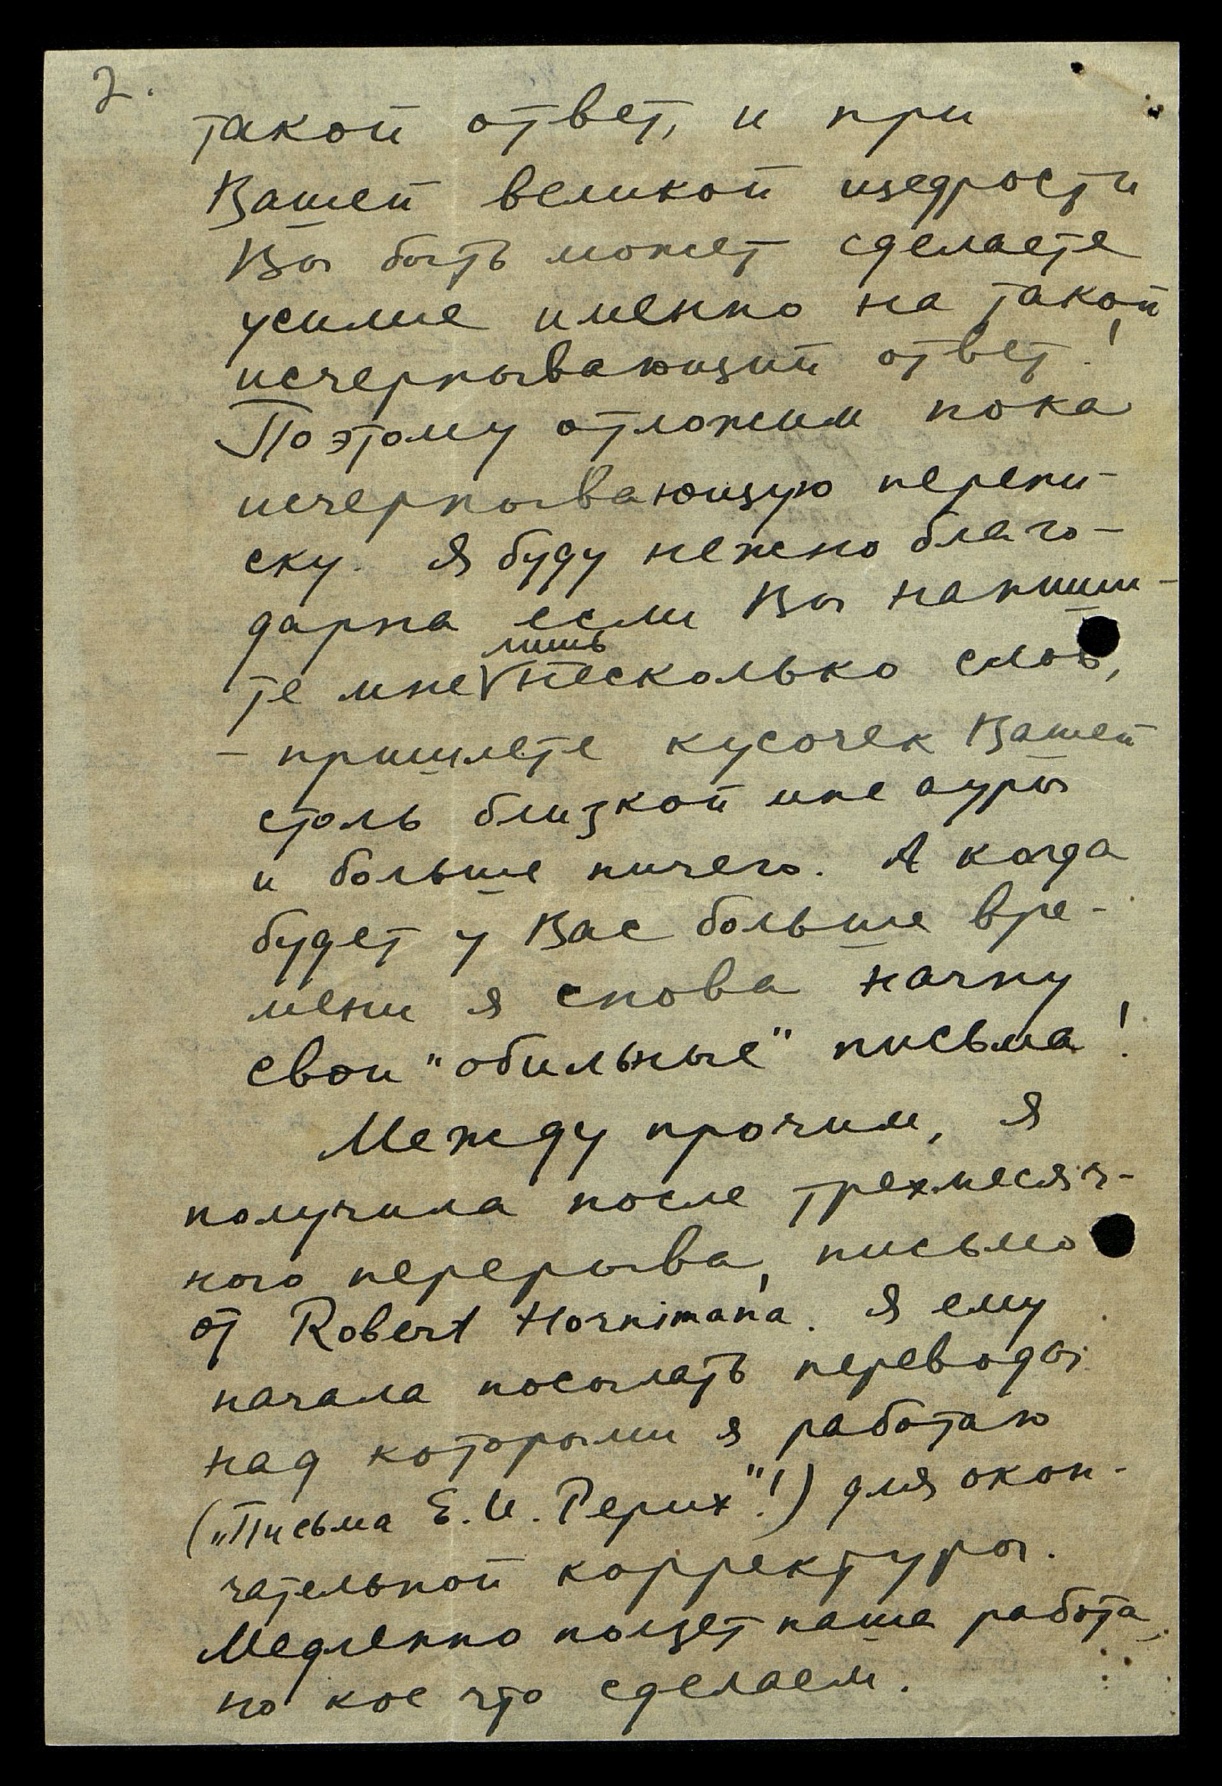 2.
такой ответ, и при
Вашей великой щедрости
Вы быть может сделаете
усилие именно на такой
исчерпывающий ответ!
Поэтому отложим пока
исчерпывающую перепи-
ску. Я буду нежно благо-
дарна если Вы напиши-
лишь
те мне несколько слов,
– пришлете кусочек Вашей
столь близкой мне ауры
и больше ничего. А когда
будет у Вас больше вре-
мени я снова начну
свои "обильные" письма!
Между прочим, я
получила после трехмесяч-
ного перерыва, письмо
от Robert Hornimana. Я ему
начала посылать переводы
над которыми я работаю
(„Письма Е.И. Рерих"!) для окон-
чательной корректуры.
Медленно ползет наша работа
но кое что сделаем.